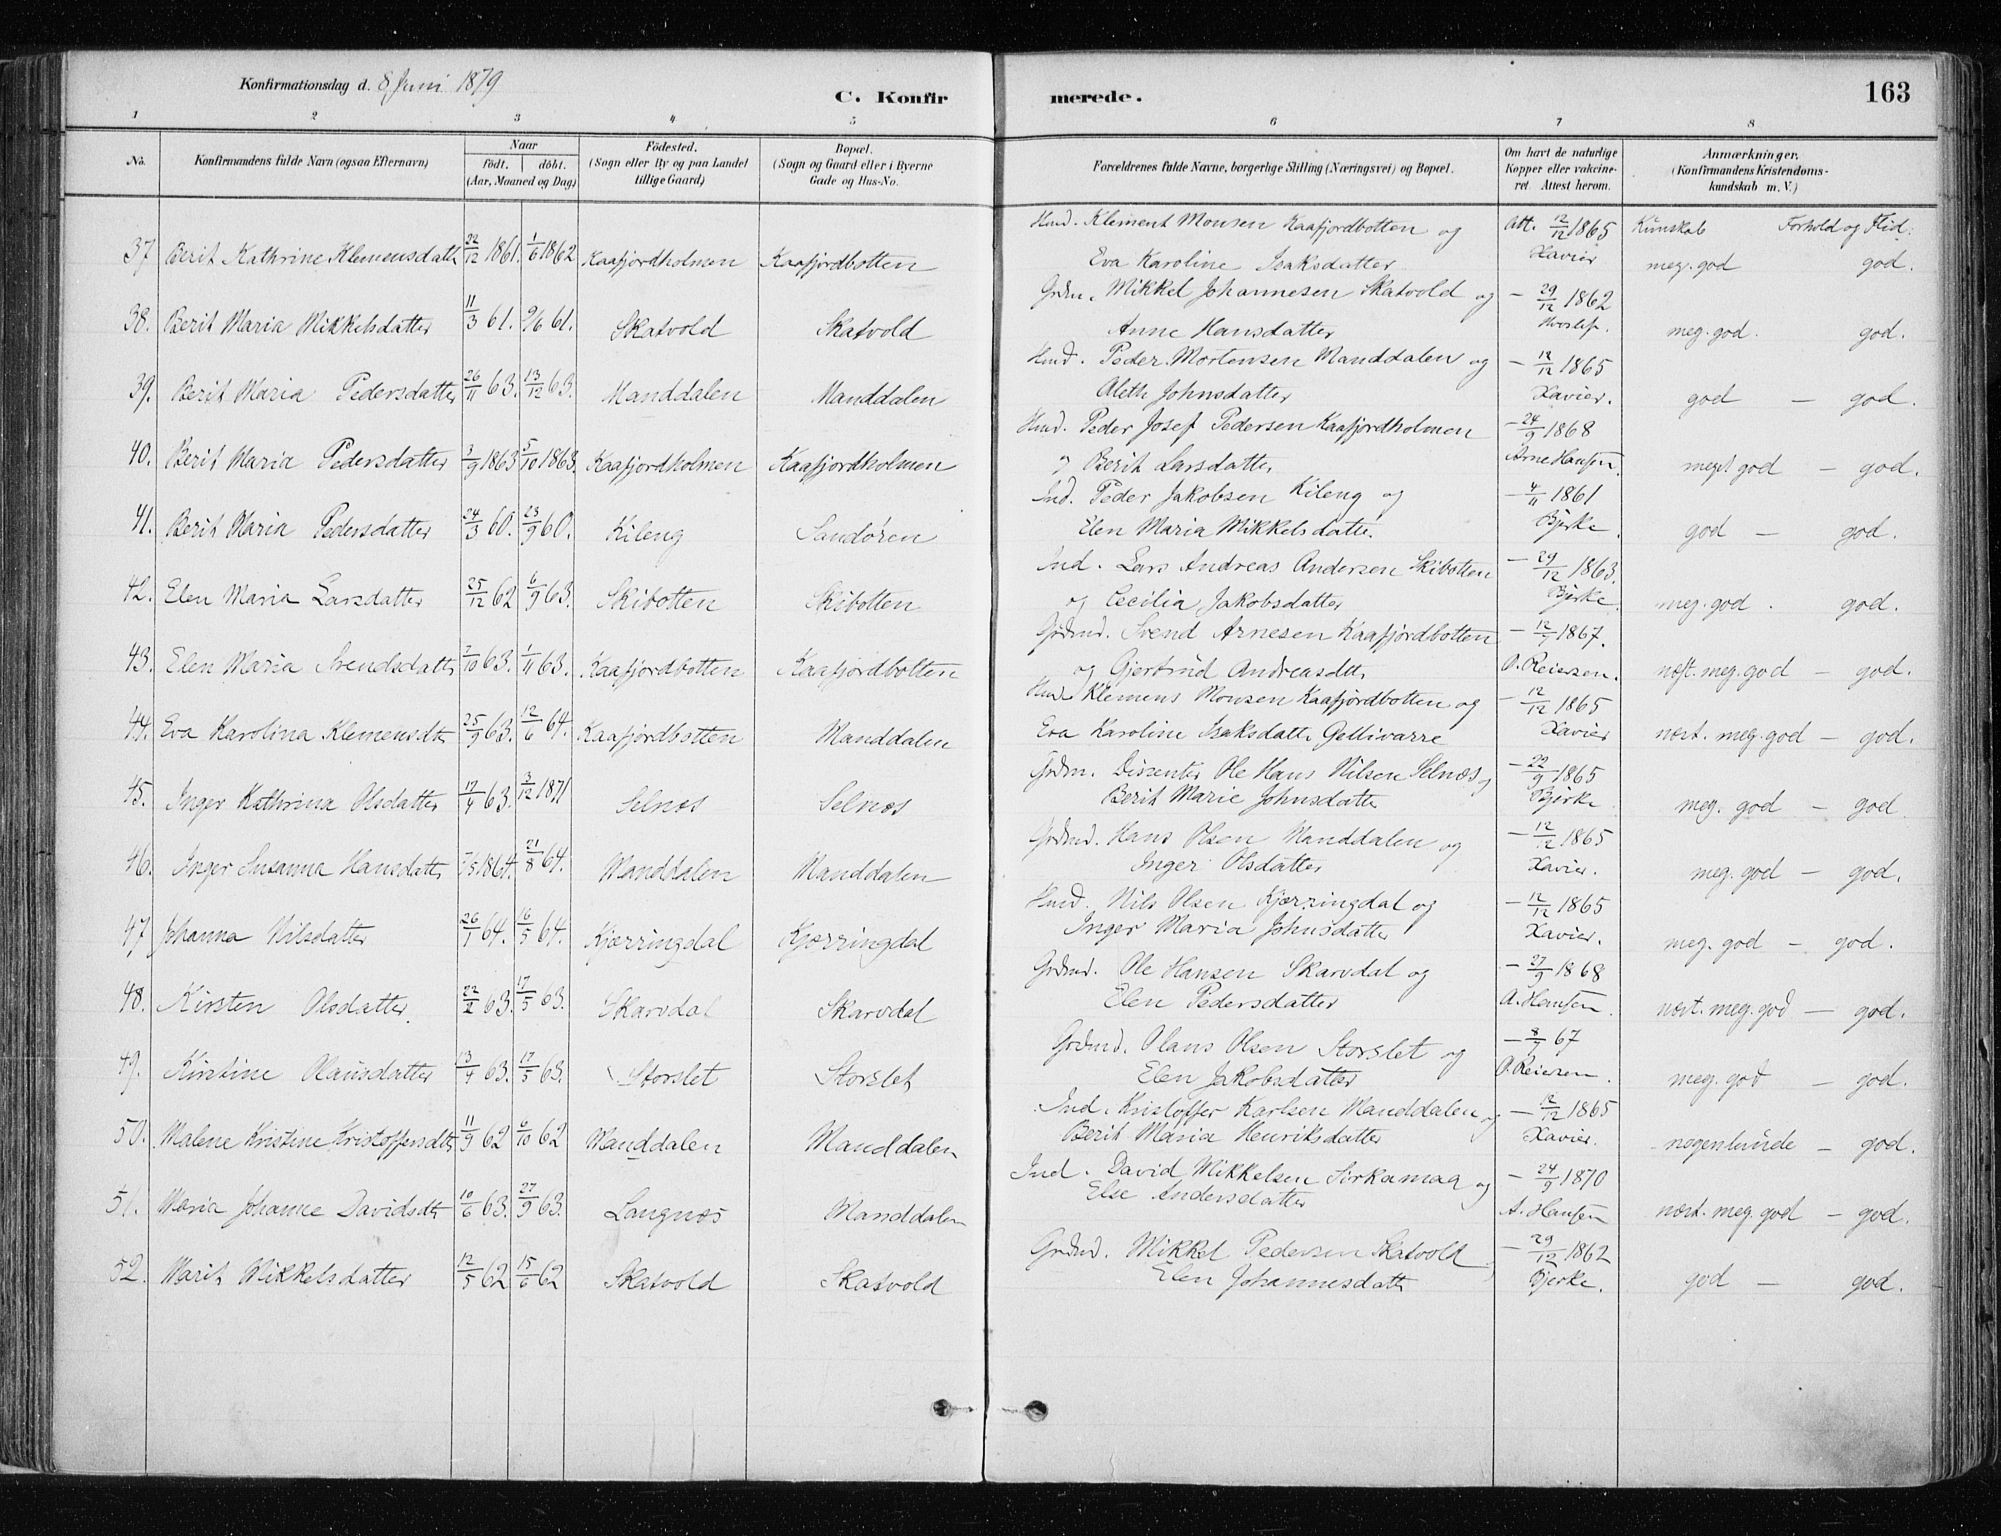 Konfirmationsdag d. 8 Juni 1879
C. Konfirmerede.
163
1 2 3 4 5 6 7 8
No. Konfirmandens fulde Navn (ogsaa Efternavn) Naar födt. döbt. (Aar, Maaned og Dag) Födested. (Sogn eller By og paa Landet tillige Gaard) Bopæl. (Sogn og Gaard eller i Byerne Gade og Hus-No. Forældrenes fulde Navne, borgerlige Stilling (Næringsvei) og Bopæl. Om havt de naturlige Kopper eller vakcineret Attest herom. Anmærkninger. (Konfirmandens Kristendomskundskab m. V.)
Hmd. Klement Monsen Kaafjordbotten og Att. 12/12 1865 Kundskab Forhold og Flid.
37 Berit Kathrine Klemensdatt. 22/12 1861. 1/6 1862 Kaafjordholmen Kaafjordbotten Eva Karoline Isaksdatter Xavier meg. god god.
Grdm. Mikkel Johannesen Skatvold og - 29/12 1862
38. Berit Maria Mikkelsdatter 11/3 61. 9/6 61. Skatvold Skatvold Anne Hansdatter meg. god. god.
Hmd. Peder Mortensen Manddalen og - 12/12 1865
39. Berit Maria Pedersdatter 26/11 63. 13/12 63. Manddalen Manddalen Aleth Johnsdatter Xavier. god - god.
Hmd. Peder Josef Pedersen Kaafjordholmen - 24/9 1868
40. Berit Maria Pedersdatter 3/9 1863 5/10 1863. Kaafjordholmen Kaafjordholmen og Berit Larsdatter Arne Hansen. meget god - god.
Ind. Peder Jakobsen Kileng og - 4/11 1861
41. Berit Maria Pedersdatter 24/3 60. 23/9 60. Kileng Sandøren Elen Maria Mikkelsdatte. Bjerke. god - god.
Ind. Lars Andreas Andersen Skibotten - 29/12 1863.
42. Elen Maria Larsdatter 25/12 62 6/9 63. Skibotten Skibotten og Cecilia Jakobsdatter Bjerke. meg. god. god.
Grdmd. Svend Arnesen Kaafjordbotten - 12/9 1867.
43. Elen Maria Svendsdatt. 2/10 63. 1/11 63. Kaafjordbotten Kaafjordbotten og Gjertrud Andreasdtt. O. Reiersen. næst. meg. god - god.
Hmd. Klemens Monsen Kaafjordbotten og - 12/12 1865
44. Eva Karolina Klemensdtr 25/9 63. 12/6 64. Kaafjordbotten Manddalen Eva Karoline Isaksdatt. Gellivarre Xavier næst. meg. god - god.
Grdm. Dissenter Ole Hans Nilsen Selnæs og - 22/9 1865
45. Inger Kathrina Olsdatter 17/4 63. 3/12 1871 Selnæs Selnæs Berit Marie Johnsdatter Bjerke meg. god - god
Grdmd. Hans Olsen Manddalen og - 12/12 1865
46. Inger Susanna Hansdatt. 7/5 1864. 21/8 64. Manddalen Manddalen Inger Olsdatter Xavier. meg. god - god.
Hmd. Nils Olsen Kjærringdal og - 12/12 1865
47. Johanna Nilsdatter 26/1 64. 16/5 64. Kjærringdal Kjærringdal Inger Maria Johnsdatter Xavier. meg. god - god.
Grdmd. Ole Hansen Skarvdal og - 27/9 1868
48. Kirsten Olsdatter. 22/2 63. 17/5 63. Skarvdal Skarvdal Elen Pedersdatter A. Hansen. næst. meg. god - god.
Grdmd. Olaus Olsen Storslet og - 8/7 67
49. Kirstine Olausdatter 13/4 63. 17/5 63. Storslet Storslet Elen Jakobsdatter O. Reiersen. meg. god - god.
Ind. Kristoffer Karlsen Manddalen og - 12/12 1865
50. Malene Kristine Kristoffersdtr 11/9 62 6/10 62 Manddalen Manddalen Berit Maria Henriksdatter Xavier. nogenlunde - god.
Ind. David Mikkelsen Sirkamaa og - 24/9 1870
51. Maria Johanne Davidsdtr 10/6 63. 27/9 63. Langnæs Manddalen Else Andersdatter A. Hansen næst. meg. god - god.
Grdmd. Mikkel Pedersen Skatvold - 29/12 1862
52. Marit Mikkelsdatter 12/5 62 15/6 62 Skatvold Skatvold Elen Johannesdatt. Bjerke. god - god.